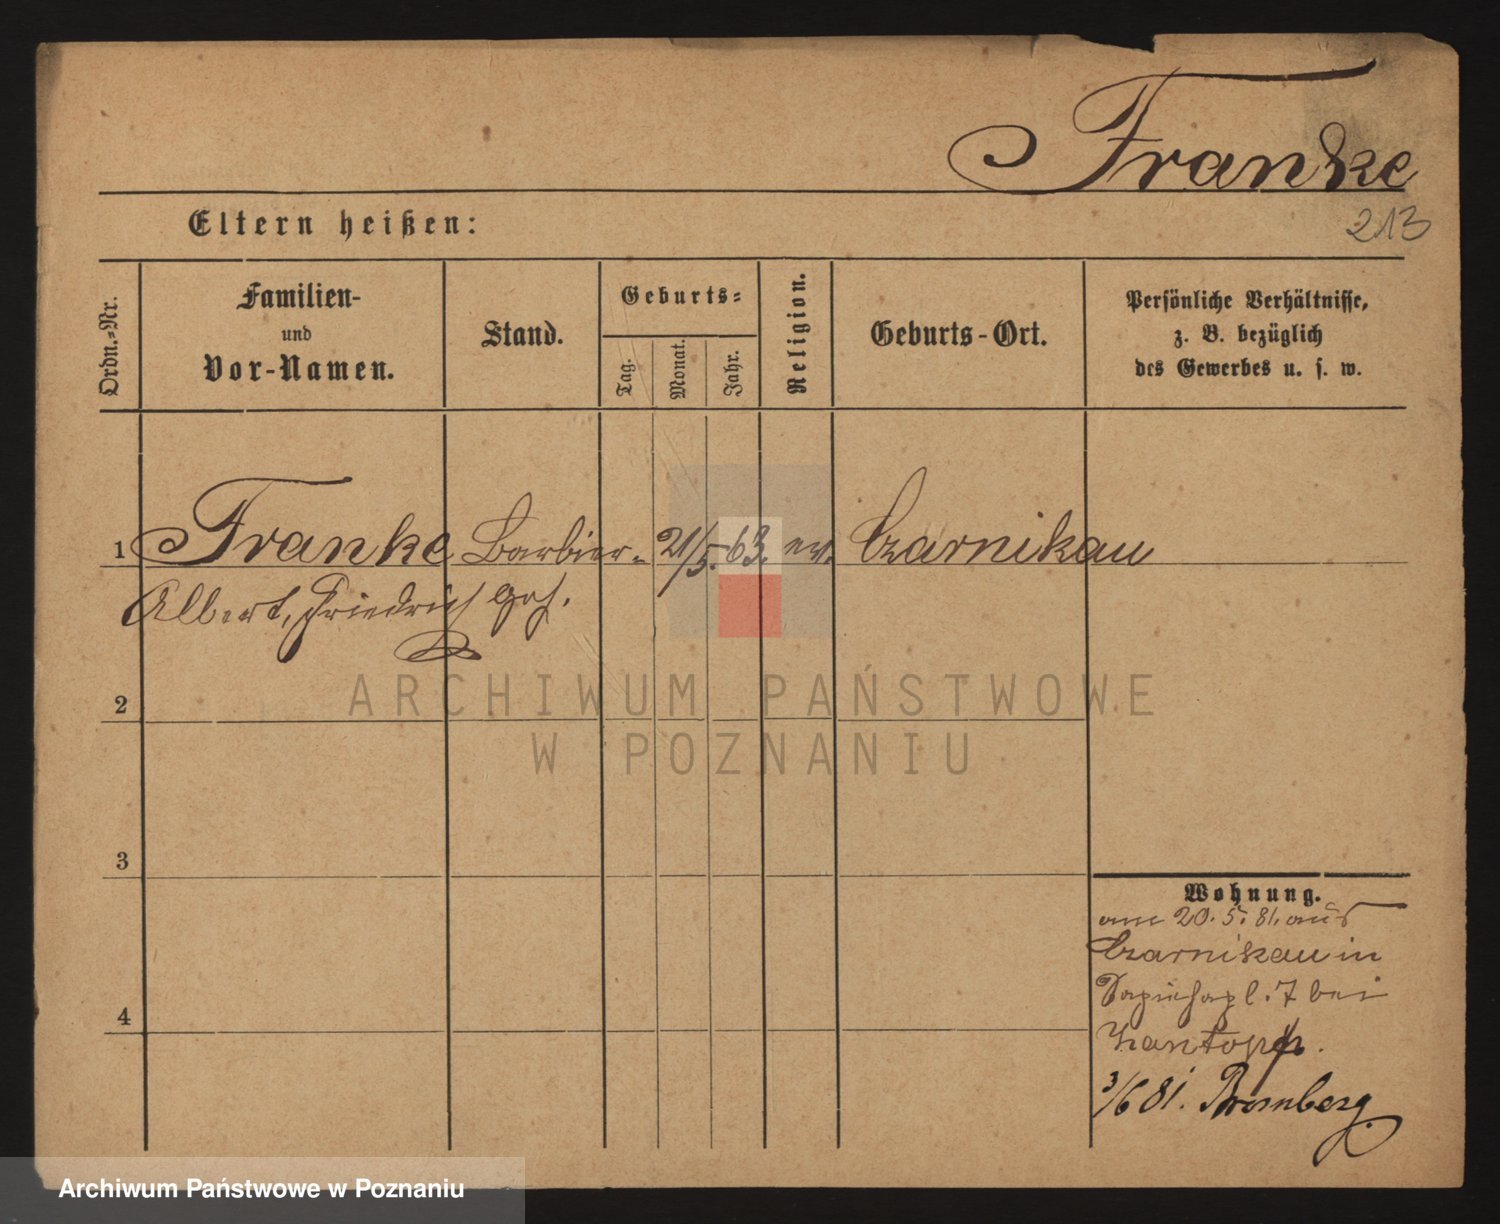 Franke
213
Eltern heißen:
Ordn.-Nr.
Familien-
und
Vor-Namen.
Stand.
Geburts-
Tag.
Monat.
Jahr.
Religion.
Geburts-Ort.
Persönliche Verhältnisse,
z. B. bezüglich
des Gewerbes u. s. w.
1 Franke Barbier- 21/5. 63. ev. Czarnikau
Albert, Friedrich Geh.
2
3
4
Wohnung.
am 20. 5. 81. aus
Czarnikau in
Sapiehapl. 7 bei
3/6 81. Bromberg
ARCHIWUM PAŃSTWOWE
W POZNANIU
Archiwum Państwowe w Poznaniu